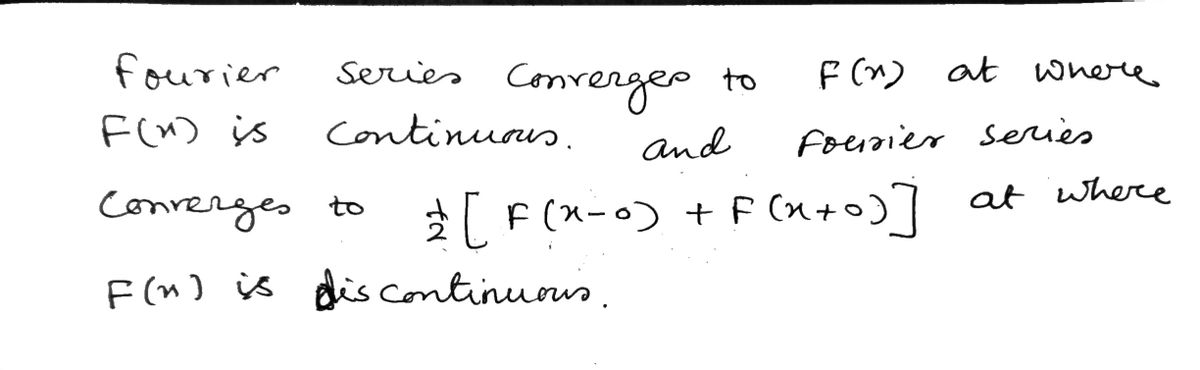 Fourier series converges to F(x) at where
F(x) is continuous. and Fourier series
converges to 1/2 [F(x-0) + F(x+0)] at where
F(x) is discontinuous.